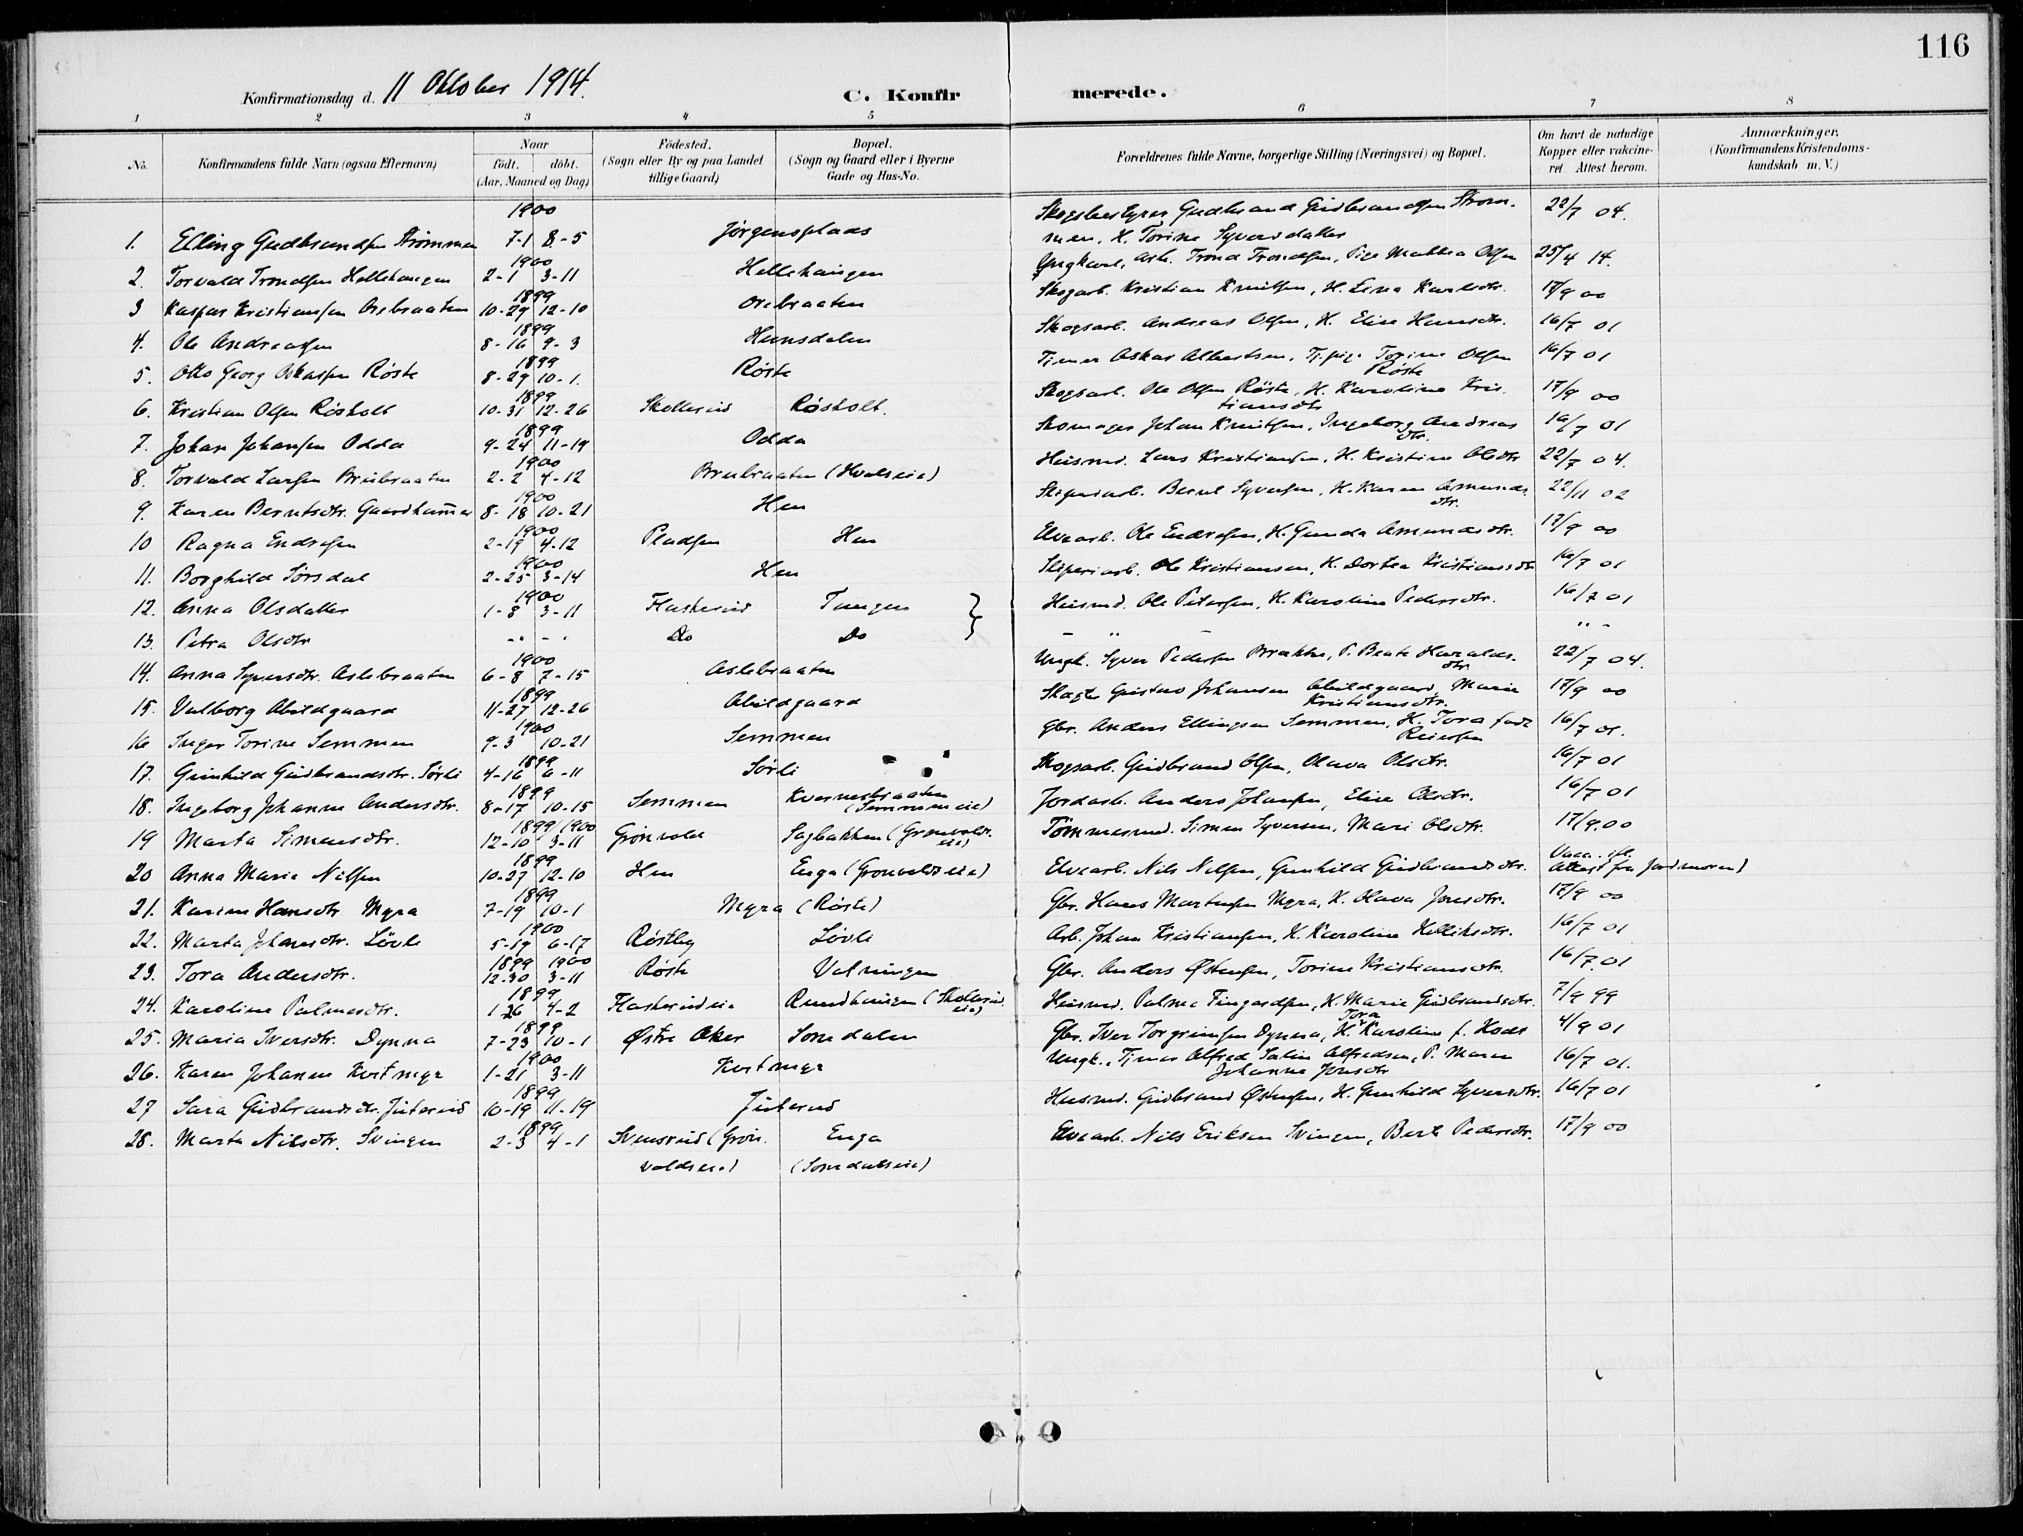 116
Konfirmationsdag d. 11 Oktober 1914.
C. Konfirmerede.
1 2 3 4 5 6 7 8
No.
Konfirmandens fulde Navn (ogsaa Efternavn)
Naar
født. døbt.
(Aar, Maaned og Dag)
Fødested.
(Sogn eller By og paa Landet
tillige Gaard)
Bopæl.
(Sogn og Gaard eller i Byerne
Gade og Hus-No.
Forældrenes fulde Navne, borgerlige Stilling (Næringsvei) og Bopæl.
Om havt de naturlige
Kopper eller vaccine-
ret. Attest herom.
Anmærkninger.
(Konfirmandens Kristendoms-
kundskab m. V.)
1900
Skogsbestyrer Gudbrand Gudbrandsen Strøm- 22/7 04.
1. Erling Gudbrandsen Strømmen 7-1 8-5 Jørgensplads men, H. Torine Syversdatter
1900
2. Torvald Trondsen Hellehaugen 2-1 3-11 Hellehaugen Ungkarl, Arb. Trond Trondsen, Pige Mathea Olsen 25/4 14.
1899
3 Kaspar Kristiansen Orebraaten 10-29 12-10 Orebraaten Skogarb. Kristian Knutsen, H. Lina Karlsdtr. 17/9 00
1899
4. Ole Andreassen 8-16 9-3 Hunsdalen Skogsarb. Andreas Olsen, H. Elise Hansdtr. 16/7 01
1899
5. Otto Georg Oskarsen Røste 8-29 10-1. Røste Timer Oskar Albertsen, Tj.pige Torine Olsen Røste 16/7 01
1899
6. Kristian Olsen Røsholt 10-31 12-26 Skollerud Røsholt. Skogsarb. Ole Olsen Røste, H. Karoline Kristiansdtr 17/9 00
1899
7. Johan Johansen Odda 9-24 11-19 Odda Skomager Johan Knutsen, Ingeborg Andreasdtr. 16/7 01
1900
8. Torvald Larsen Brubraaten 2-2 4-12 Brubraaten (Hvalseie) Husmd. Lars Kristiansen, H. Kristine Olsdtr 22/7 04.
1900
9. Karen Berntsdtr. Gaardhammer 8-18 10-21 Hen Sliperiarb. Bernt Syversen, H. Karen Amundsdtr. 22/11 02
1900
10 Ragna Endresen 2-19 4-12 Pladsen Hen Elvearb. Ole Endresen, H. Gunda Amundsdtr. 17/9 00
1900
11. Borghild Sørsdal 2-25 3-14 Hen Sliperiarb. Ole Kristiansen, H. Dortea Kristiansdtr 16/7 01
1900
12. Anna Olsdatter 1-8 3-11 Flaskerud Tangen } Husmd. Ole Petersen, H. Karoline Pedersdtr. 16/7 01
13. Petra Olsdtr " - " Do Do - " - " -
1900
14. Anna Syversdtr. Aslebraaten 6-8 7-15 Aslebraaten Ungk. Syver Pedersen Brække, P. Beate Haraldsdtr. 22/7 04.
1899
15. Valborg Abildgaard 11-27 12-26 Abildgaard Slagter Gustav Johansen Abildgaard, Marie Kristiansdtr. 17/9 00
1900
16 Inger Torine Semmen 9-3 10-21 Semmen Gbr. Anders Ellingsen Semmen, H. Tora født Reiersen 16/7 01.
1899
17. Gunhild Gudbrandsdtr. Sørli 4-16 6-11 Sørli Skogsarb. Gudbrand Olsen, Olava Olsdtr. 16/7 01
1899
18. Ingeborg Johanne Andersdtr. 8-17 10-15 Semmen Kvernebraaten (Semmeneie) Jordarb. Anders Johansen, Elise Olsdtr. 16/7 01
1899 1900
19 Marta Simensdtr. 12-10 3-11 Grønvold Sagbakken (Grønvoldseie) Tømmermd. Simen Syversen, Mari Olsdtr. 17/9.00
1899
20 Anna Marie Nilsen 10-27 12-10 Hen Enga (Grønvoldseie) Elvearb. Nils Nilsen, Gunhild Gudbrandsdtr. Vacc. ifl. Attest fra Jordmoren)
1899
21. Karine Hansdtr Myra 7-19 10-1 Myra (Røste) Gbr. Hans Martinsen Myra, H. Olava Jonsdtr. 17/9 00
1900
22. Marta Johansdtr. Løvli 5-19 6-17 Røstbg Løvli Arb. Johan Kristiansen, H. Karoline Helliksdtr. 16/7 01
1899 1900
23. Tora Andersdtr. 12-30 3-11 Røste Valningen Gbr. Anders Østensen, Torine Kristiansdtr. 16/7.01
1899
24. Karoline Palmesdtr. 1 26 4-2 Flaskerudeie Rundhaugen (Skolleruds eie) Husmd. Palme Fingardsen, H. Marie Gudbrandsdtr. 7/9 99
1899
25. Maria Iversdtr. Dynna 7-23 10-1 Østre Aker Somdalen Gbr. Iver Torgrimsen Dynna, H. Tora Karoline f. Hods 4/9 01
1900
26. Karen Johanne Kortmyr 1-21 3-11 Kortmyr Ungk., Timer Alfred Salin Alfredsen, P. Maren Johanne Jonsdtr 16/7 01.
1899
27 Sara Gudbrandsdtr. Juterud 10-19 11-19 Juterud Husmd. Gudbrand Østensen, H. Gunhild Syversdtr. 16/7 01
1899
28. Marta Nilsdtr. Svingen 2-3 4-1 Svensrud (Grønvoldseie) Enga (Somdalseie) Elvearb. Nils Eriksen Svingen, Berte Pedersdtr. 17/9 00